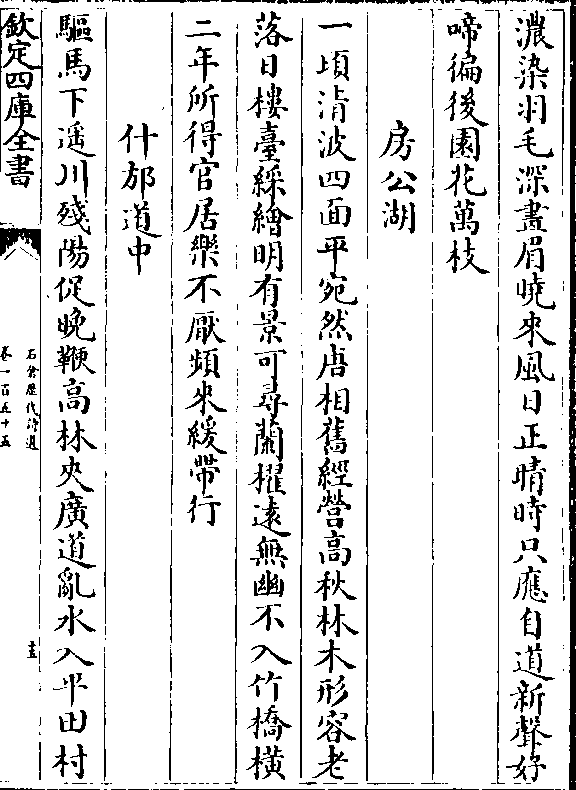 濃染羽毛深畫眉曉來風日正晴時只應自道新聲好
啼徧後園花萬枝
房公湖
一頃清波四面平宛然唐相舊經營高秋林木形容老
落日樓臺綵繪明有景可尋蘭櫂遠無幽不入竹橋橫
二年所得官居樂不厭頻來緩帶行
什邡道中
驅馬下遥川殘陽促晚鞭高林夾廣道亂水入平田村
欽定四庫全書
石倉歴代詩選
卷一百五十五